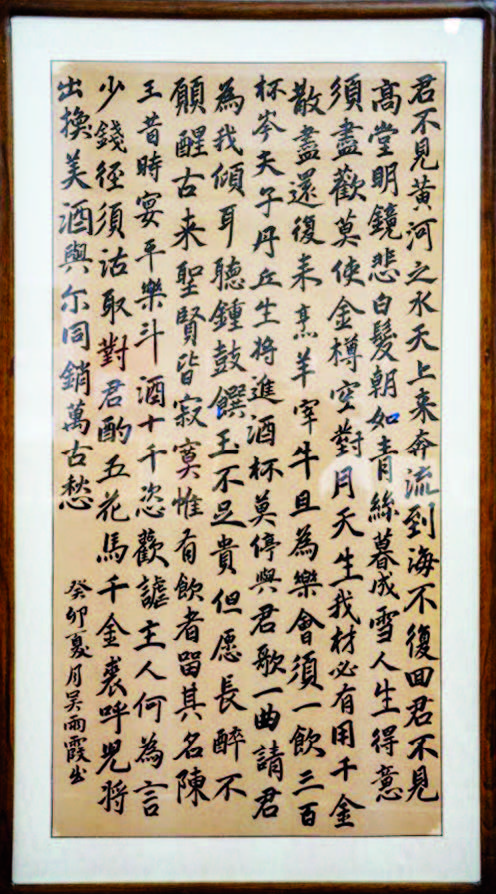 君不見黃河之水天上来奔流到海不復回君不見
高堂明鏡悲白髮朝如青絲暮成雪人生得意
須盡歡莫使金樽空對月天生我材必有用千金
散盡還復来烹羊宰牛且為樂會須一飲三百
杯岑夫子丹丘生将進酒杯莫停與君歌一曲請君
為我傾耳聽鍾鼓饌玉不足貴但愿長醉不
願醒古来聖賢皆寂寞惟有飲者留其名陳
王昔時宴平樂斗酒十千恣歡謔主人何為言
少錢徑須沽取對君酌五花馬千金裘呼兒将
出換美酒與尔同銷萬古愁
癸卯夏月吴雨霞书